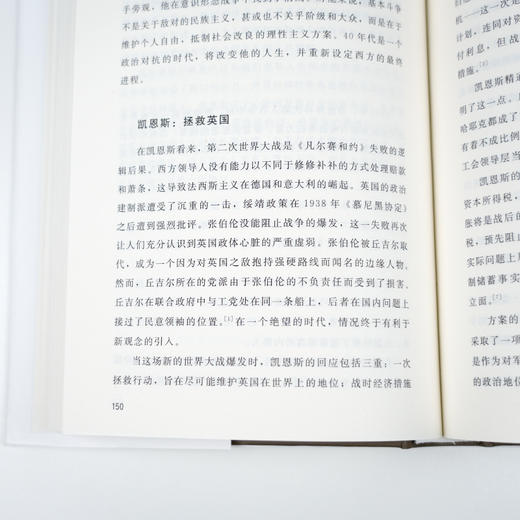 手旁观，他在意识形态战争
不是关于敌对的民族主义，甚或也不关乎阶级和大众，而是在于
维护个人自由，抵制社会改良的理性主义方案。40 年代是一个
政治对抗的时代，将改变他的人生，并重新设定西方的最终
进程。
凯恩斯：拯救英国
在凯恩斯看来，第二次世界大战是《凡尔赛和约》失败的逻
辑后果。西方领导人没有能力以不同于修修补补的方式处理赔款
和萧条，这导致法西斯主义在德国和意大利的崛起。英国的政治
建制派遭受了沉重的一击，绥靖政策在 1938 年《慕尼黑协定》
之后遭到强烈批评。张伯伦没能阻止战争的爆发，这一失败再次
让人们充分认识到英国政体心脏的严重虚弱。张伯伦被丘吉尔取
代，成为一个因为对英国之敌抱持强硬路线而闻名的边缘人物。
然而，丘吉尔所在的党派由于张伯伦的不负责任而受到了损害。
丘吉尔在联合政府中与工党处在同一条船上，后者在国内问题上
接过了民意领袖的位置。[1]在一个绝望的时代，情况终于有利于
新观念的引入。
当这场新的世界大战爆发时，凯恩斯的回应包括三重：一次
拯救行动，旨在尽可能维护英国在世界上的地位；战时经济措施
150
税——这一
计划，连同对资
付利息，但战
措施。
凯恩斯精通
了这一点。
哈耶克都成了
有着不成比例
工会领导层当
凯恩斯的
资本所得税，
张将是战后的
预先阻止
实际问题上
制储蓄事实
立面。
方案的
采取了一项
是作为对军
的政治地位